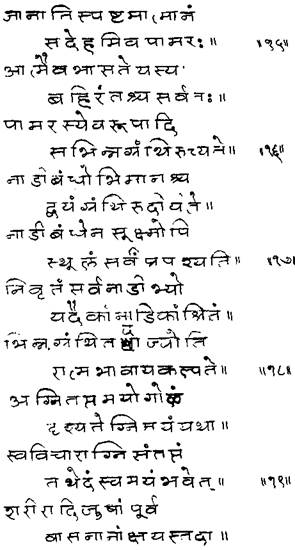 जानाति स्पष्टमात्मानं
स देहमिव पामरः॥ ॥१५॥
आत्मैव भासते यस्य
बहिरंतश्च सर्वतः॥
पामरस्येव रूपादि
स भिन्नग्रंथिरुच्यते॥ ॥१६॥
नाडीबंधोभिमानश्च
द्वयं ग्रंथिरुदीर्यते॥
नाडीबंधेन सूक्ष्मोपि
स्थूलं सर्वं प्रपश्यति॥ ॥१७॥
निवृतं सर्वनाडीभ्यो
यदैकां नाडिकां श्रितं॥
भिंन्नग्रंथितदा ज्योति
रात्मभावाय कल्पते॥ ॥१८॥
अग्नितप्तमयोगोळं
दृश्यतेग्निमयं यथा॥
स्वविचाराग्निसंतप्तं
तथेदं स्वमयं भवेत्॥ ॥१९॥
शरीरादिजुषां पूर्व
वासनानां क्षयस्तदा॥